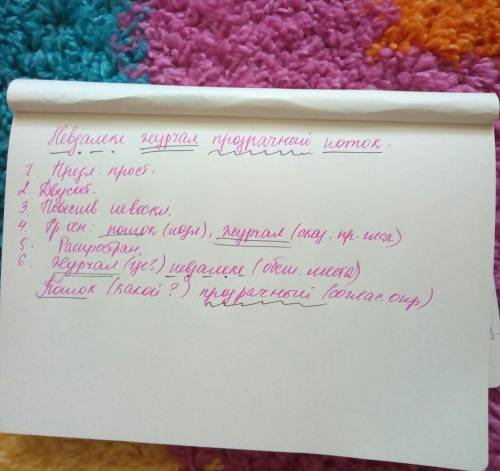 Невдалеке журчал прозрачный поток.
1. Предл. прост.
2. Двусост.
3. Повеств. невоскл.
4. Гр. осн: поток (подл), журчал (сказ. пр. глаг)
5. Распростран.
6. Журчал (где?) невдалеке (обст. места)
Поток (какой?) прозрачный (соглас. опр)